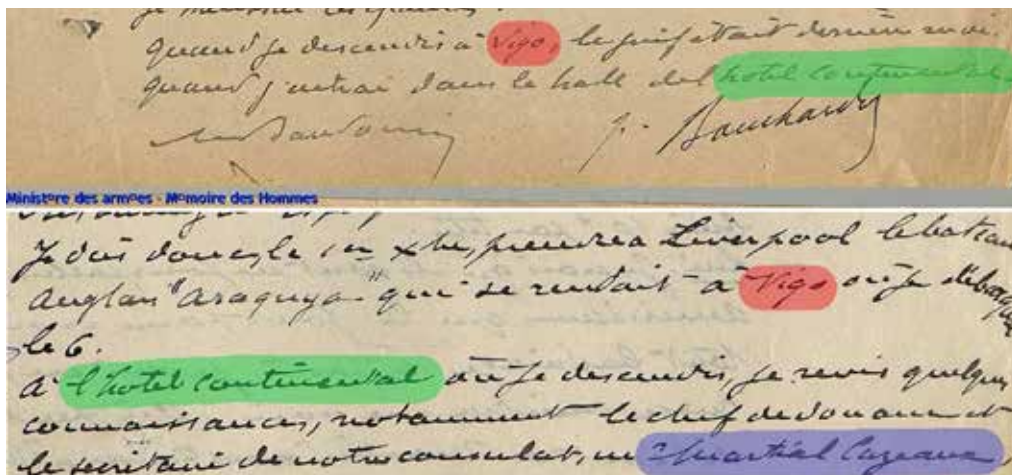 quand je descendis à Vigo, le juif était derrière moi.
quand j'entrai dans le hall del hotel continental
P. Bouchardon
Ministère des armées - Mémoire des Hommes
Je dus donc, le 1er Xbre, prendre à Liverpool le bateau
anglais "Araguya" qui se rendait à Vigo où je débarquai
le 6.
A l'hotel continental où je descendis, je revis quelques
connaissances, notamment le chef de douane et
le secrétaire de notre consulat, Mr Martial Cazeaux